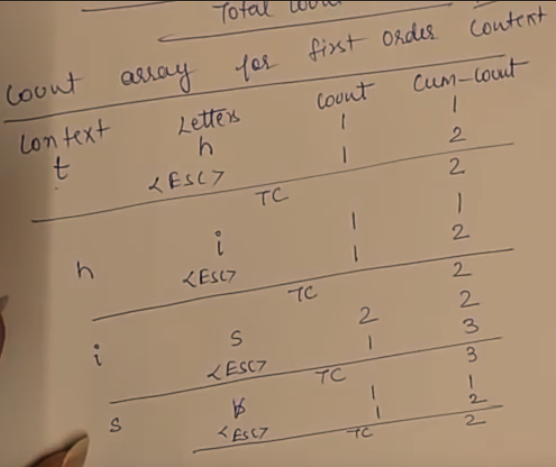 Total
Count array for first order context
Context Letters Count Cum-Count
t h 1 1
<ESC> 1 2
TC 2
h i 1 1
<ESC> 1 2
TC 2
i s 2 2
<ESC> 1 3
TC 3
s b̸ 1 1
<ESC> 1 2
TC 2